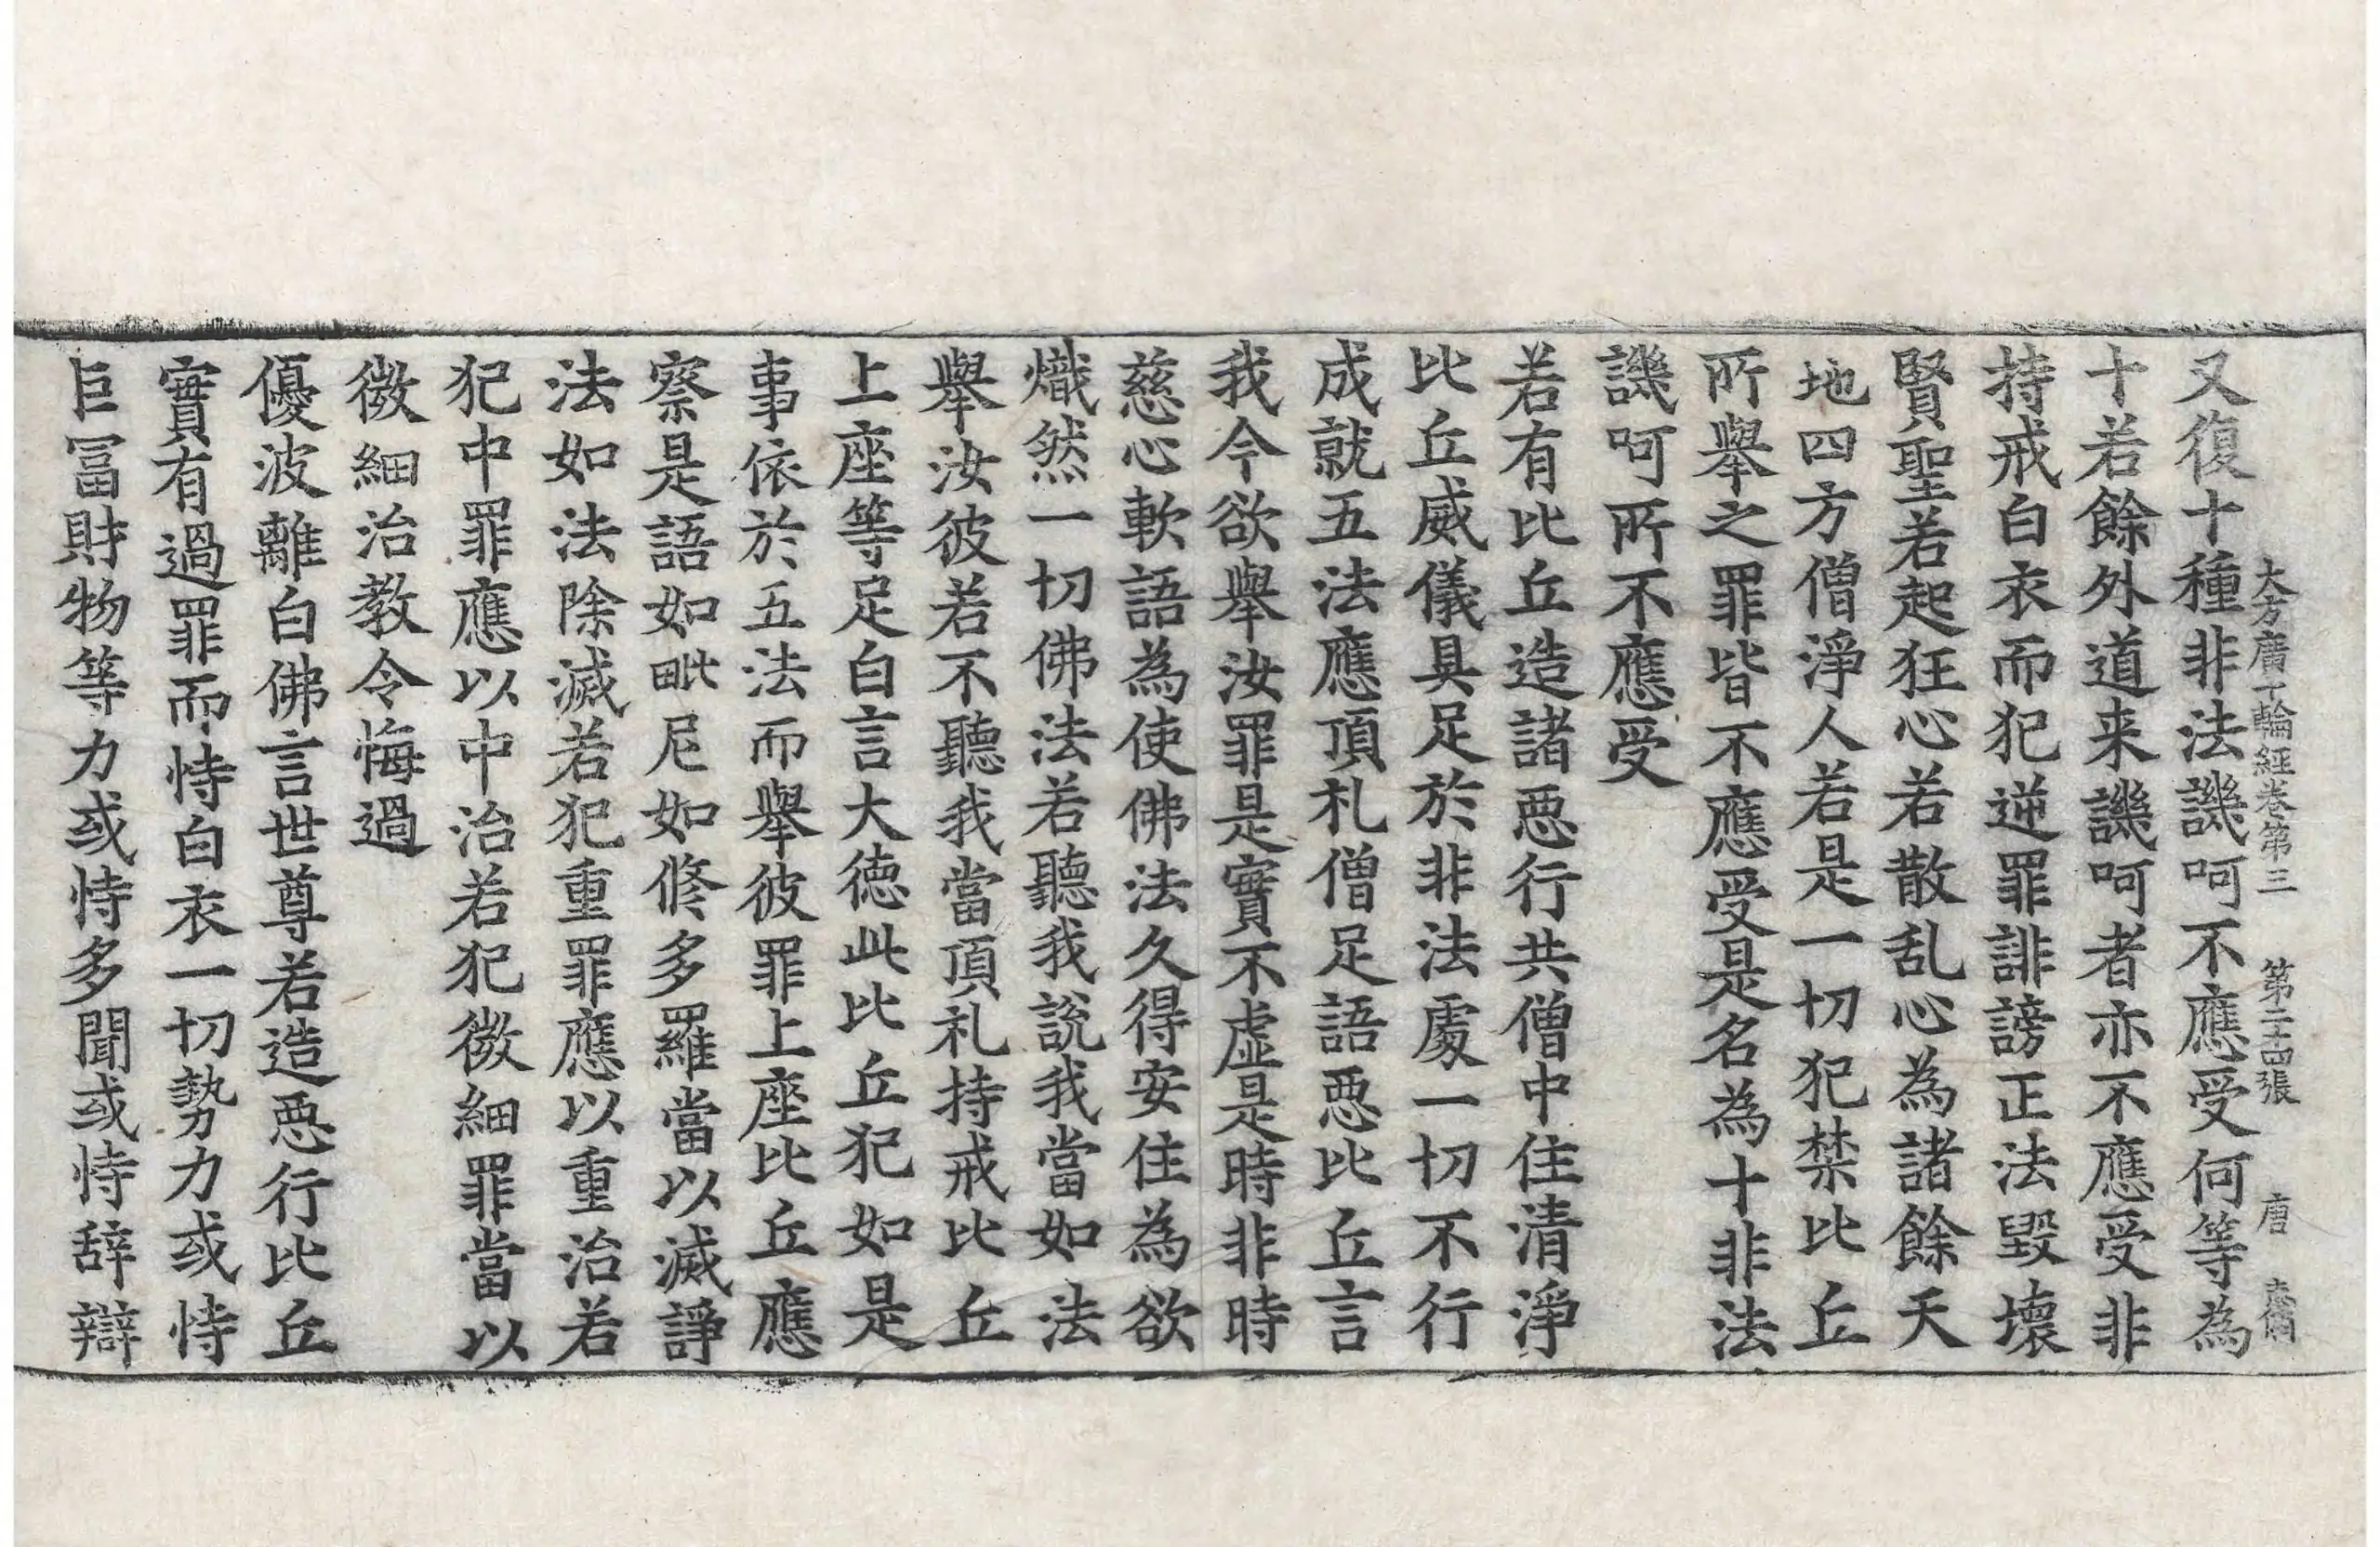 大方廣十輪經卷第三 第二十四張 唐
又復十種非法譏呵不應受何等為
十若餘外道来譏呵者亦不應受非
持戒白衣而犯逆罪誹謗正法毀壞
賢聖若起狂心若散乱心為諸餘天
地四方僧淨人若是一切犯禁比丘
所舉之罪皆不應受是名為十非法
譏呵所不應受
若有比丘造諸惡行共僧中住清淨
比丘威儀具足於非法處一切不行
成就五法應頂礼僧足語惡比丘言
我今欲舉汝罪是實不虛是時非時
慈心軟語為使佛法久得安住為欲
熾然一切佛法若聽我說我當如法
舉汝彼若不聽我當頂礼持戒比丘
上座等足白言大徳此比丘犯如是
事依於五法而舉彼罪上座比丘應
察是語如毗尼如修多羅當以滅諍
法如法除滅若犯重罪應以重治若
犯中罪應以中治若犯微細罪當以
微細治教令悔過
優波離白佛言世尊若造惡行比丘
實有過罪而恃白衣一切勢力或恃
巨冨財物等力或恃多聞或恃辞辯